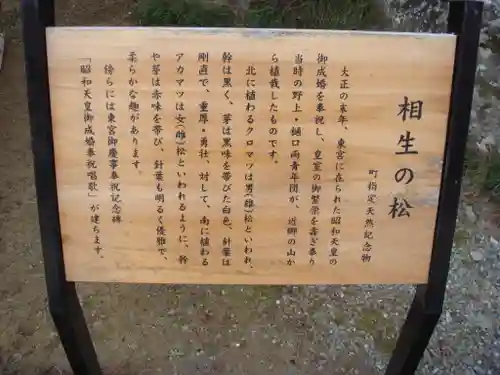 相生の松
町指定天然記念物
大正の末年、東宮に在られた昭和天皇の
御成婚を奉祝し、皇室の御繁栄を壽ぎ奉り
当時の野上・樋口両青年団が、近郷の山か
ら植栽したものです。
北に植わるクロマツは男(雄)松といわれ、
幹は黒く、芽は黒味を帯びた白色、針葉は
剛直で、重厚・勇壮、対して、南に植わる
アカマツは女(雌)松といわれるように、幹
や芽は赤味を帯び、針葉も明るく優雅で、
柔らかな趣があります。
傍らには東宮御慶事奉祝記念碑
「昭和天皇御成婚奉祝唱歌」が建ちます。